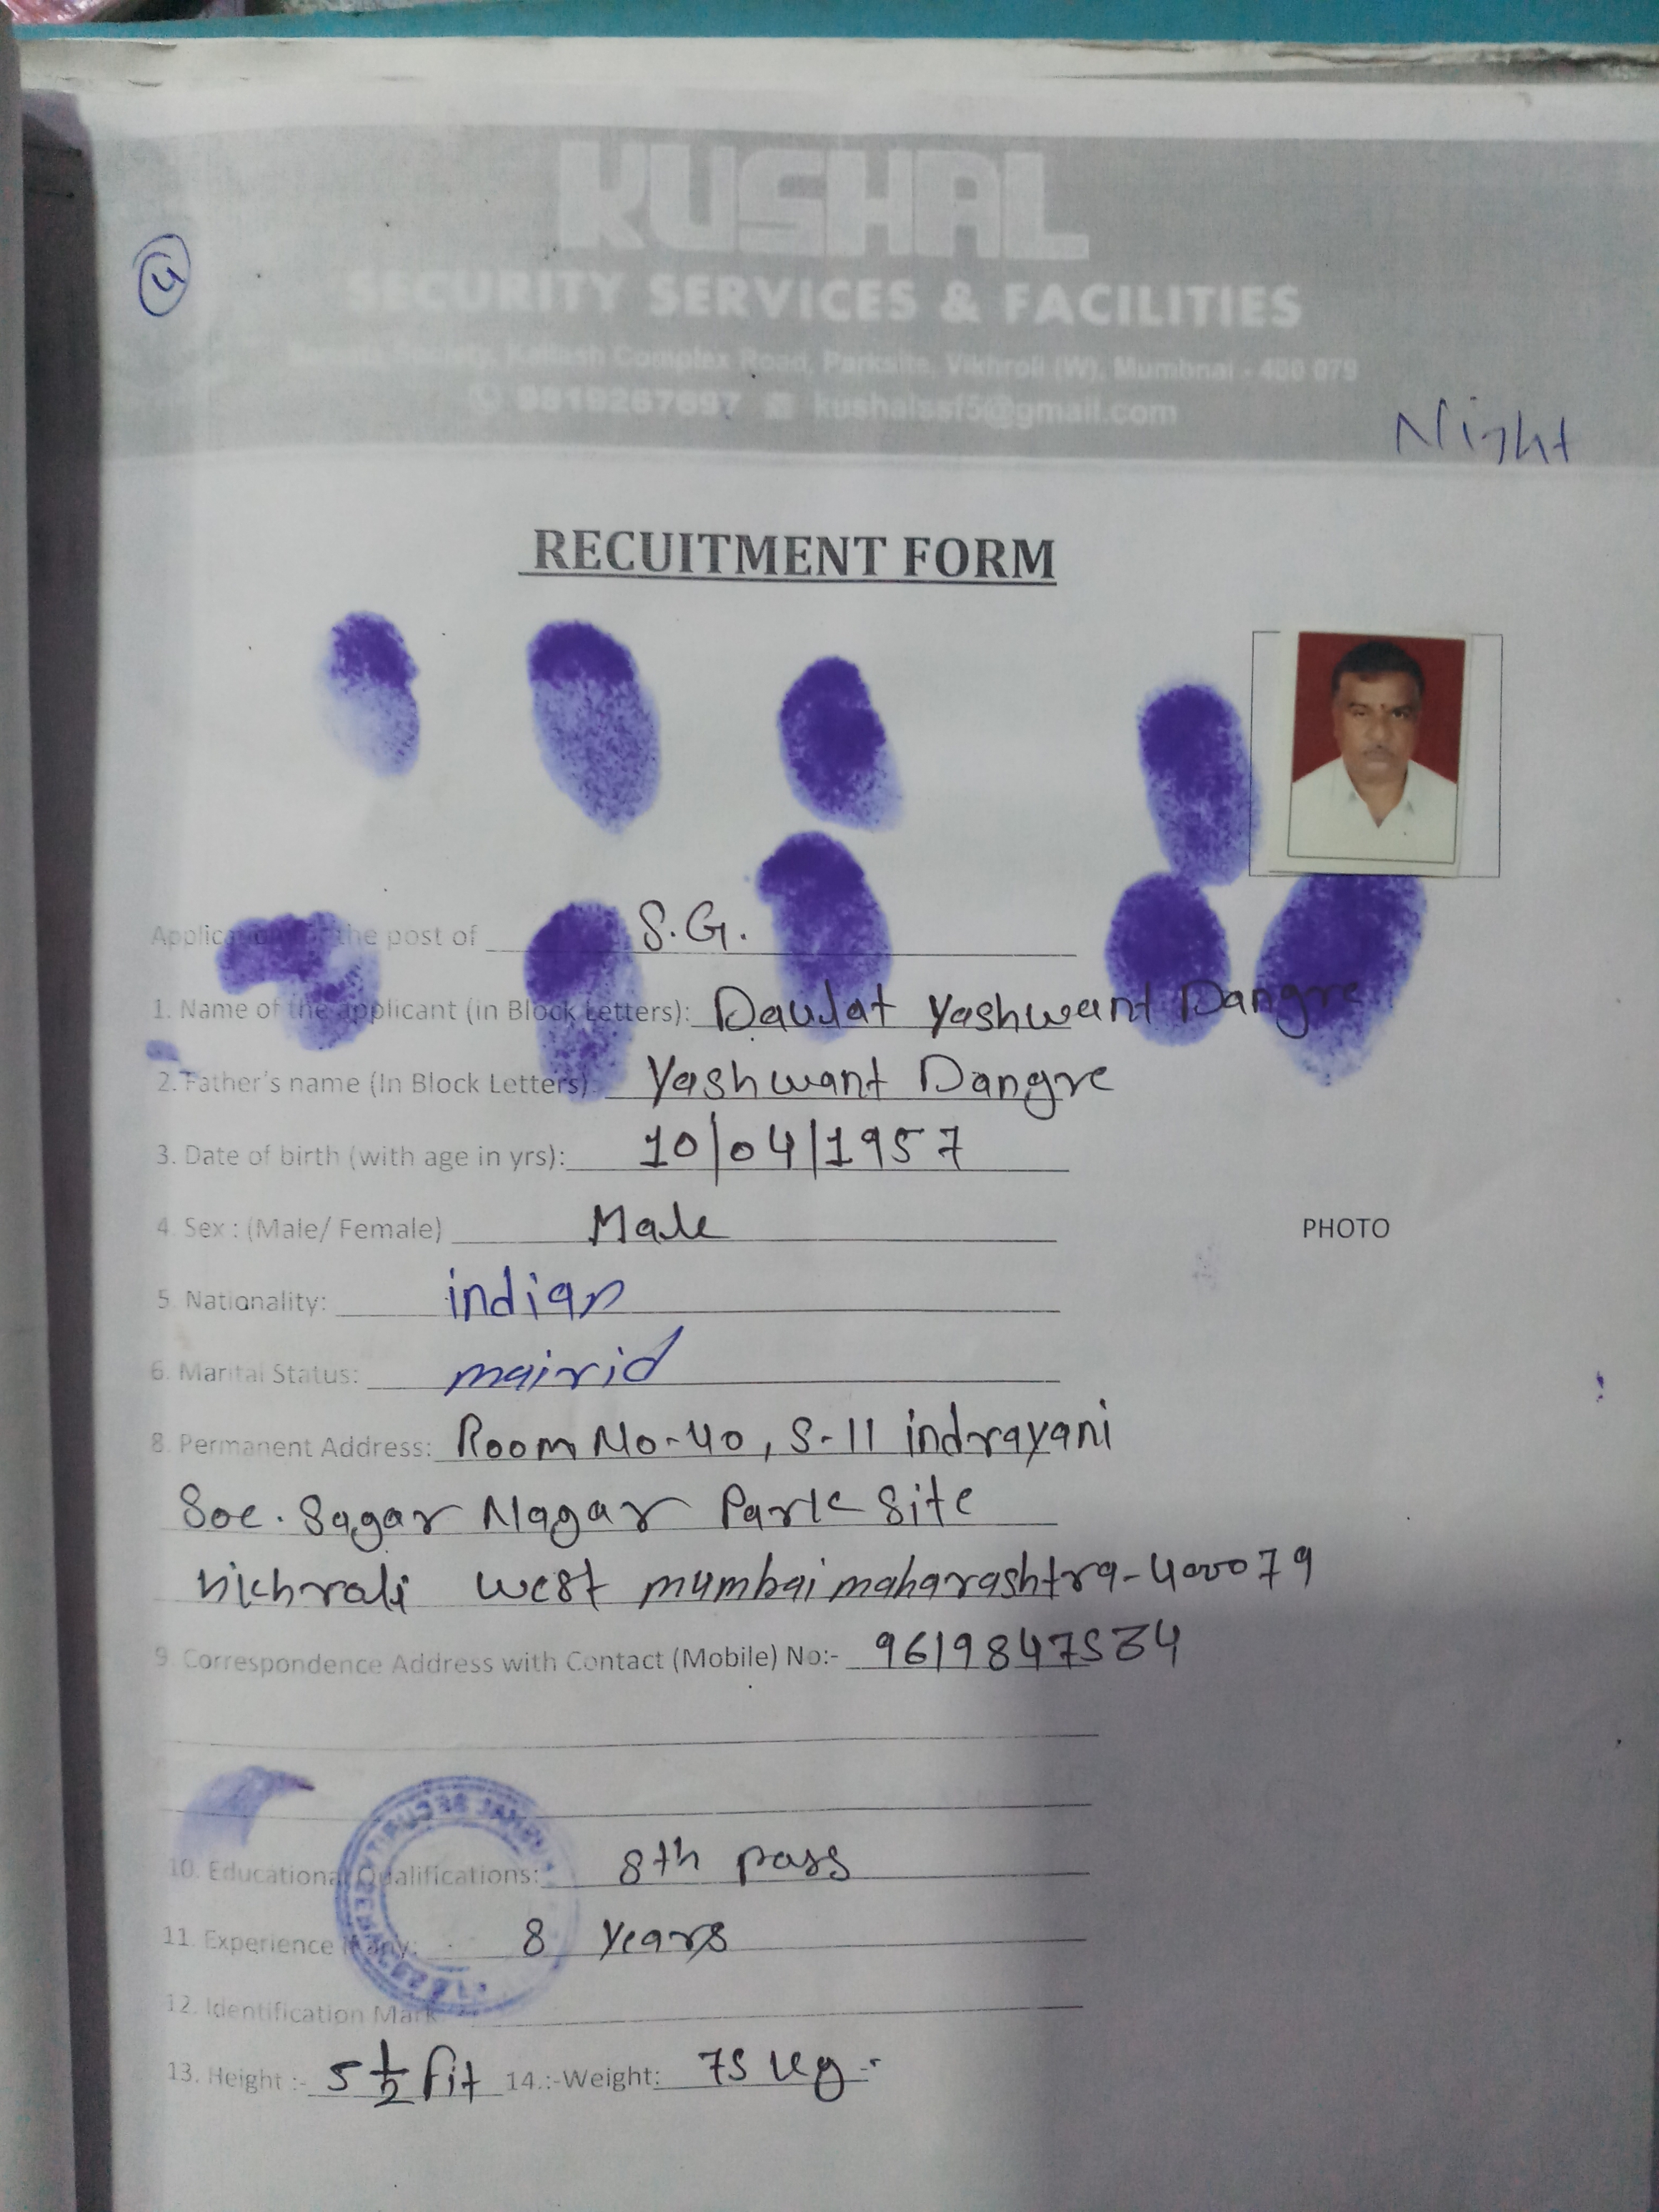 KUSHAL
SECURITY SERVICES & FACILITIES
Society, Kailash Complex Road, Parksite, Vikhroli (W), Mumbnai - 400 079
9819267697 kushalssf5@gmail.com
4
Night
RECUITMENT FORM
Application for the post of S.G.
1. Name of the applicant (in Block Letters): Daulat Yashwant Dangre
2. Father's name (In Block Letters): Yashwant Dangre
3. Date of birth (with age in yrs): 10/04/1957
4. Sex : (Male/ Female) Male
PHOTO
5. Nationality: indian
6. Marital Status: mairid
8. Permanent Address: Room No-40, S-11 indrayani
Soc. Sagar Nagar Park Site
vikhroli west mumbai maharashtra-400079
9. Correspondence Address with Contact (Mobile) No:- 9619847534
10. Educational Qualifications: 8th pass
11. Experience if any: 8 years
12. Identification Mark
13. Height :- 5 1/2 fit 14.:-Weight: 75 kg